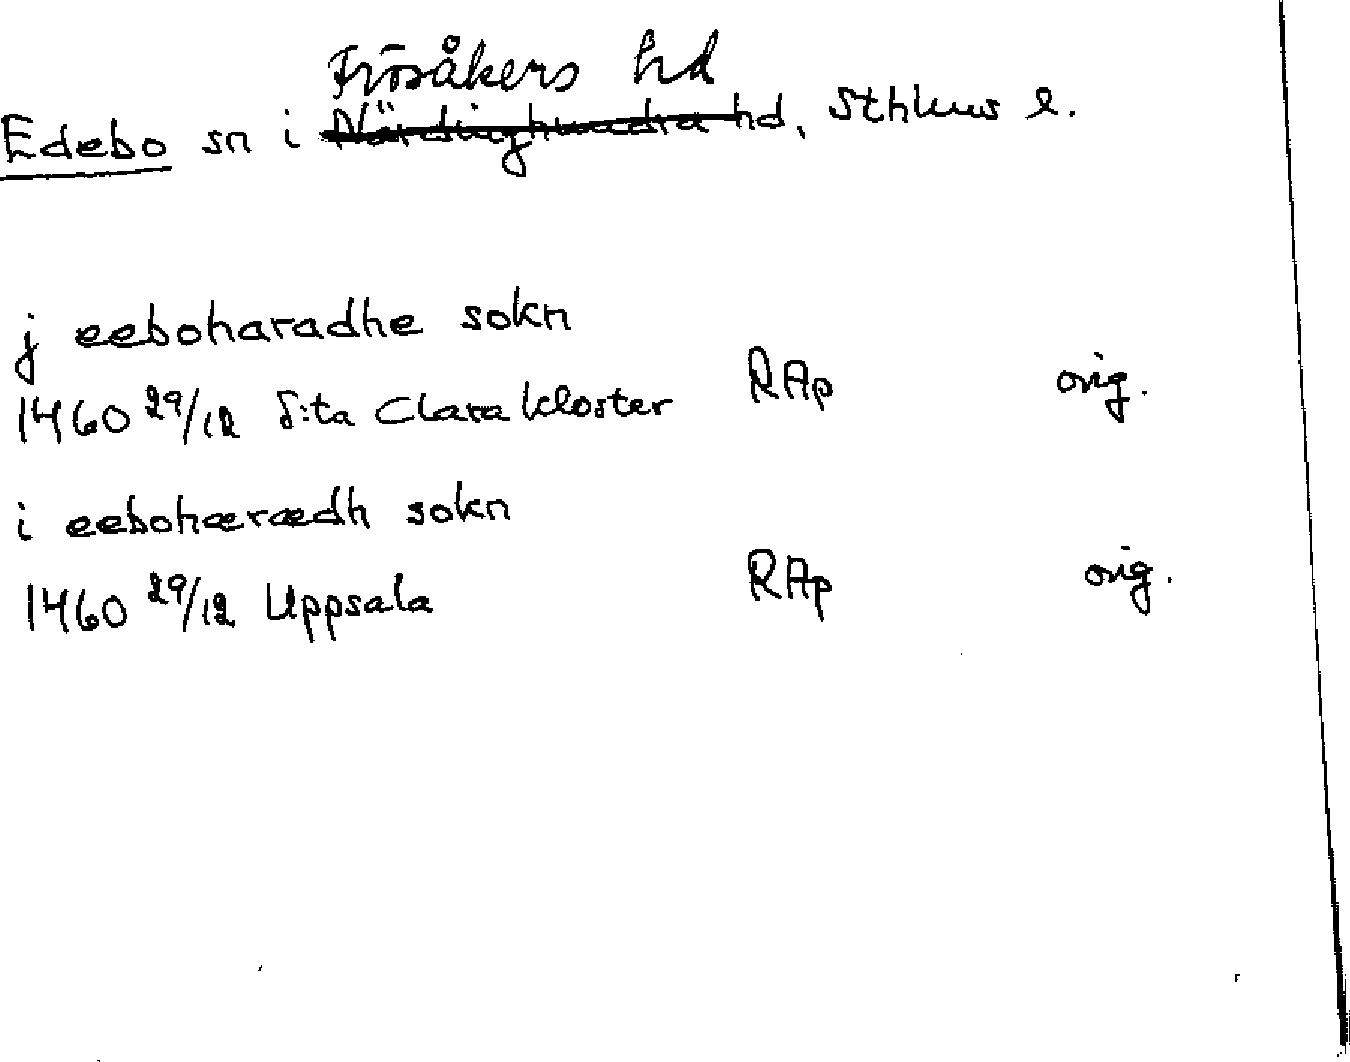 Frösåkers hd
Edebo sn i Närdinghundra hd, Sthlms l.
j eeboharadhe sokn
1460 29/12 S:ta Clara kloster RAp orig.
i eebohærædh sokn
1460 29/12 Uppsala RAp orig.